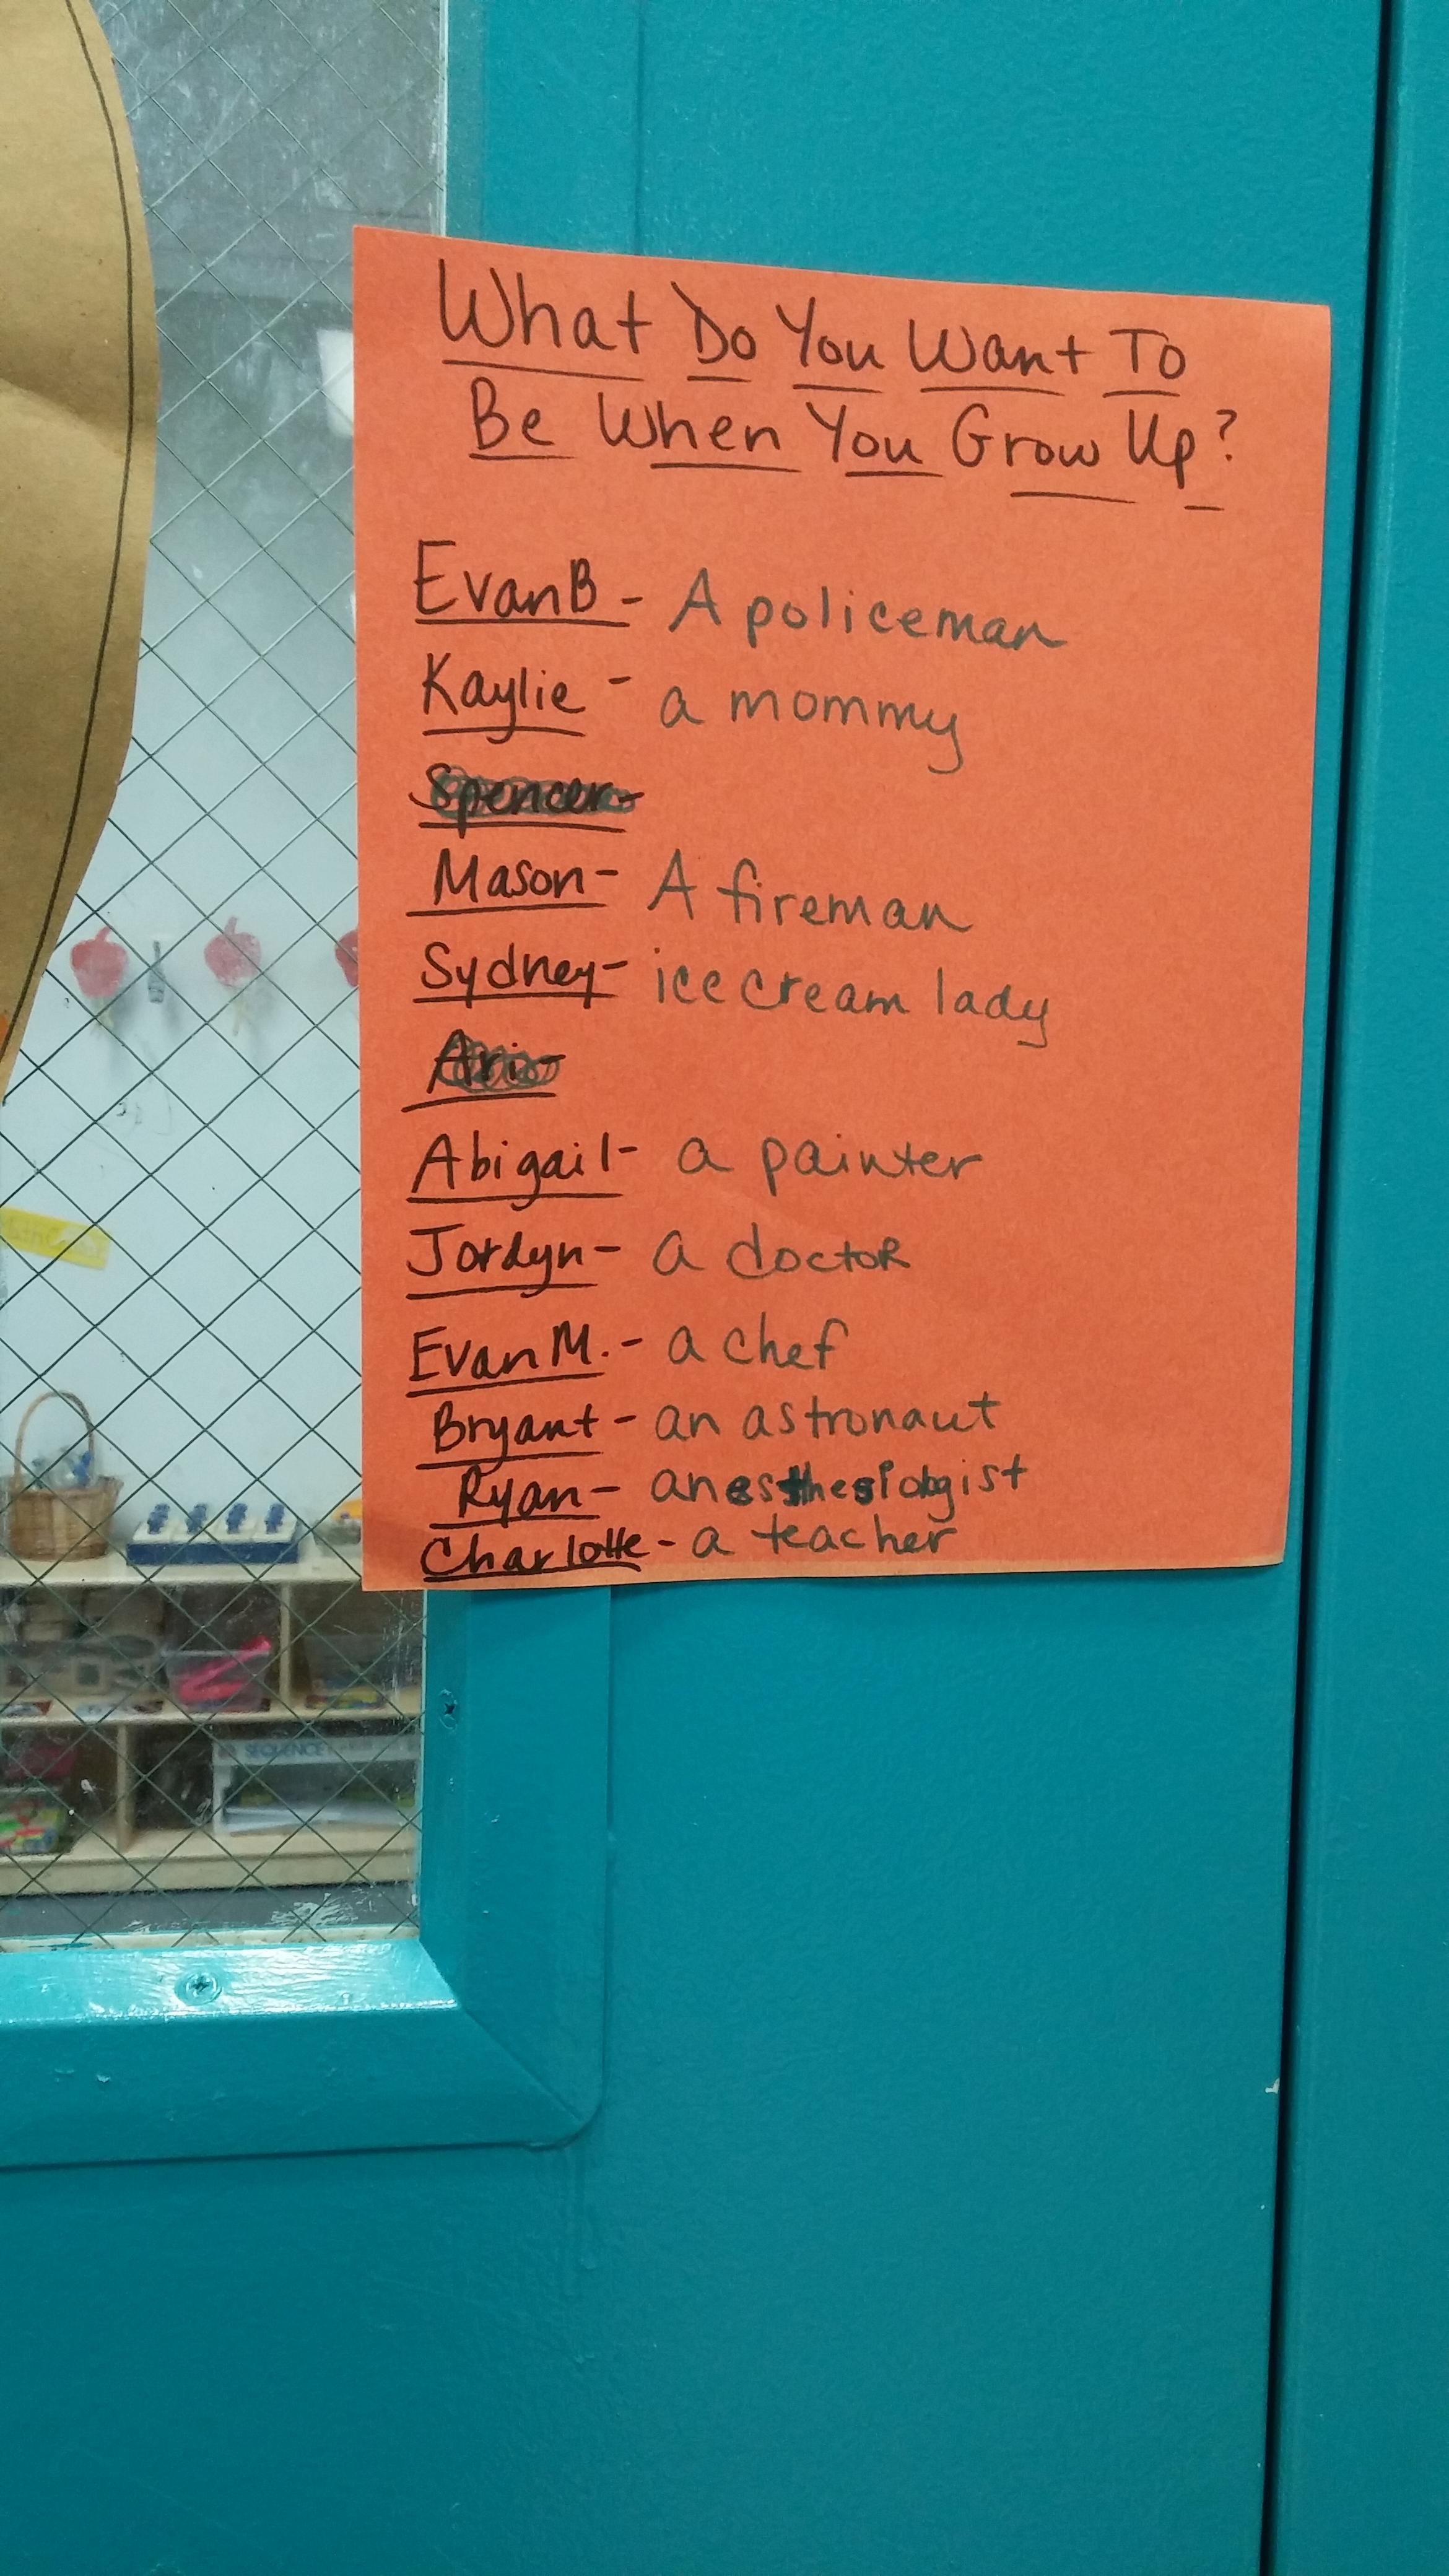 What Do You Want To
Be When You Grow Up?
Evan B - A policeman
Kaylie - a mommy
Spencer-
Mason- A fireman
Sydney- ice cream lady
Ari-
Abigail- a painter
Jordyn- a doctor
Evan M. - a chef
Bryant - an astronaut
Ryan- anesthesiologist
Charlotte - a teacher
SEQUENCE